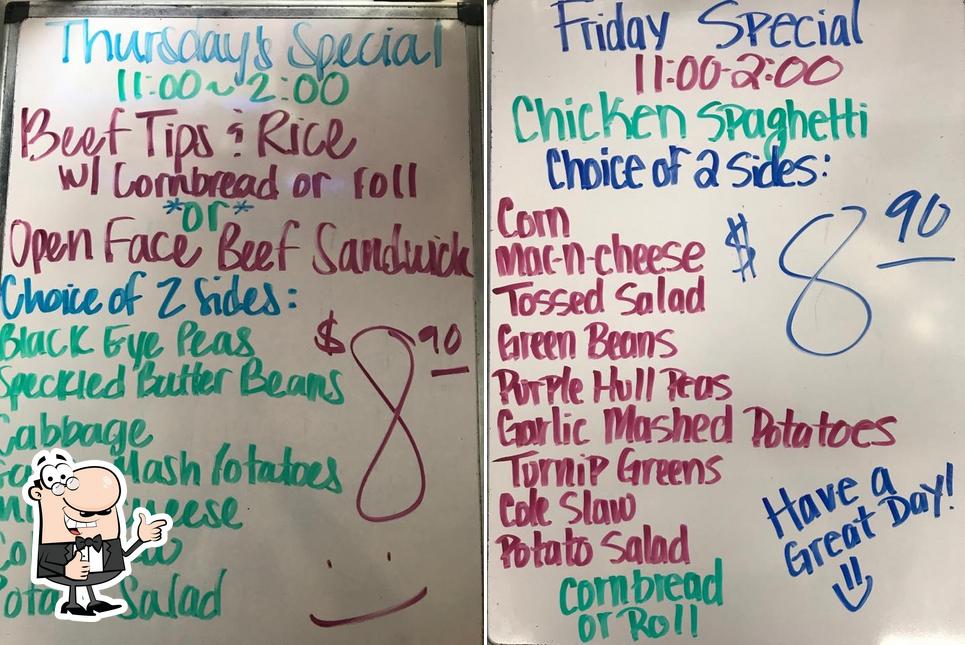 Thursday's Special
11:00~2:00
Beef Tips & Rice
w/ Cornbread or roll
*or*
Open Face Beef Sandwich
Choice of 2 Sides:
Black Eye Peas
Speckled Butter Beans
Cabbage
Mash Potatoes
Potato Salad
$8.90
Friday Special
11:00-2:00
Chicken Spaghetti
Choice of 2 sides:
Corn
Mac-n-cheese
Tossed Salad
Green Beans
Purple Hull Peas
Garlic Mashed Potatoes
Turnip Greens
Cole Slaw
Potato Salad
cornbread
or Roll
$8 90
Have a
Great Day!